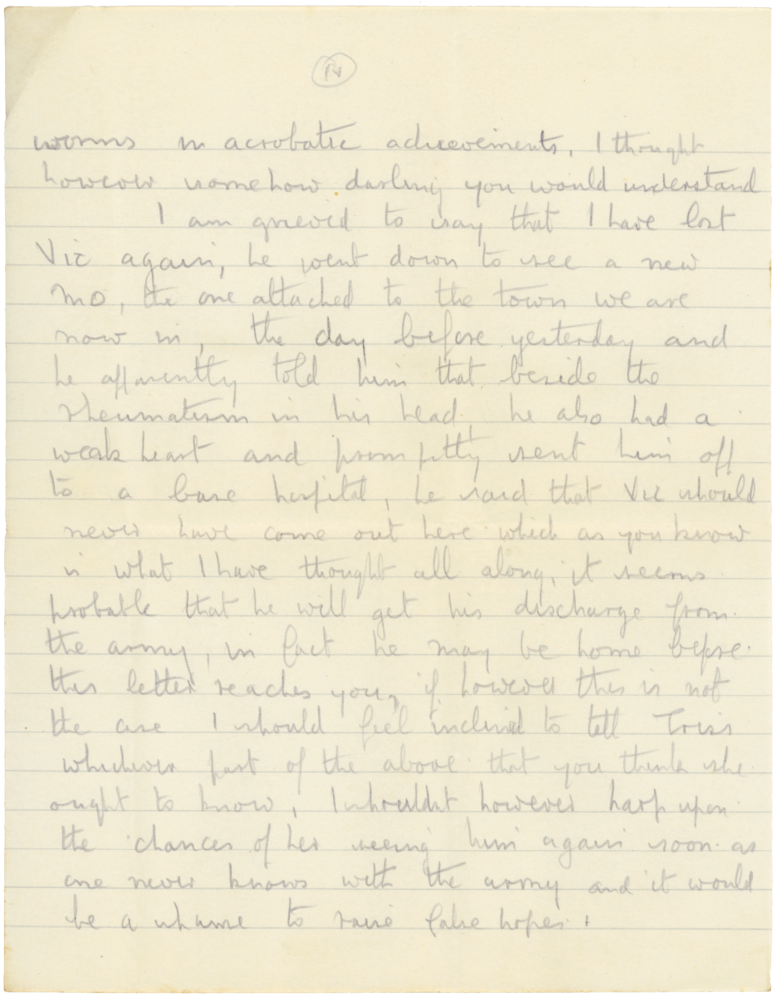 worms in acrobatic achievements, I thought
however somehow darling you would understand
I am grieved to say that I have lost
Vic again, he went down to see a new
MO, the one attached to the town we are
now in, the day before yesterday and
he apparently told him that beside the
rheumatism in his head, he also had a
weak heart and promptly sent him off
to a base hospital, he said that Vic should
never have come out here which as you know
is what I have thought all along, it seems
probable that he will get his discharge from
the army, in fact he may be home before
this letter reaches you, if however this is not
the case I should feel inclined to tell
whichever part of the above that you think she
ought to know, I shouldnt however harp upon
the chances of her seeing him again soon as
one never knows with the army and it would
be a shame to raise false hopes.